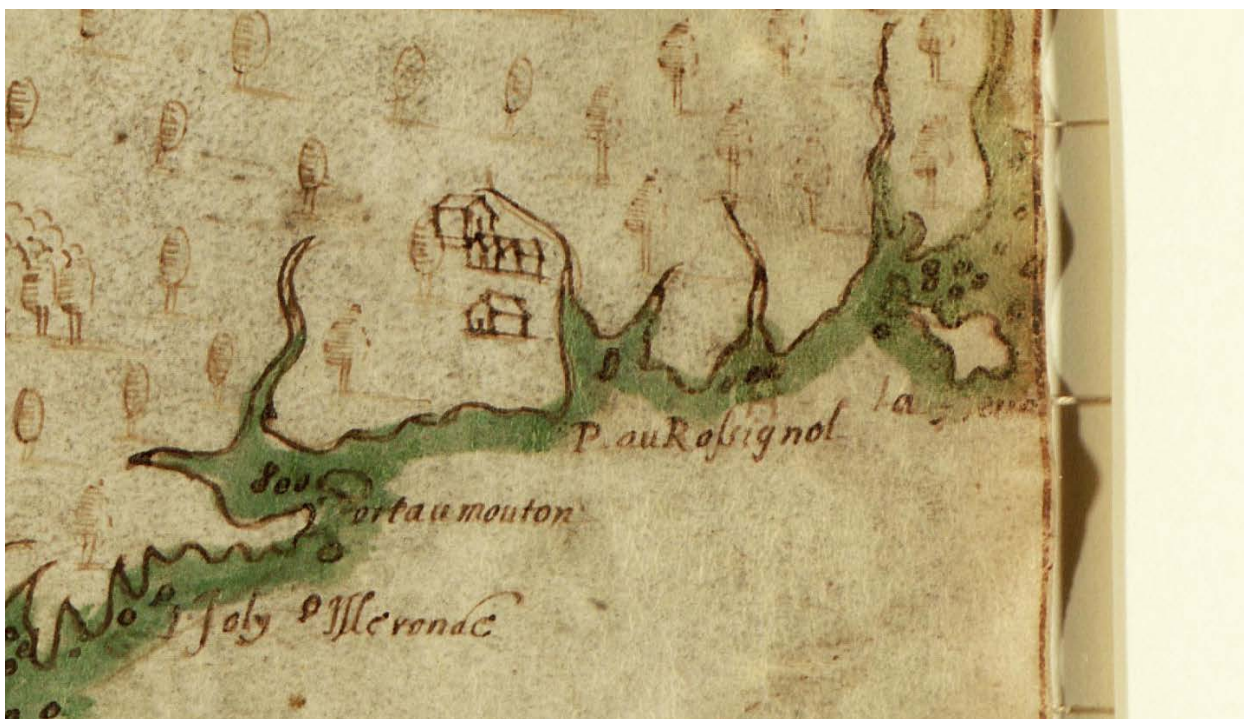 P. au Rossignol
la
port au mouton
Joly Isle ronde